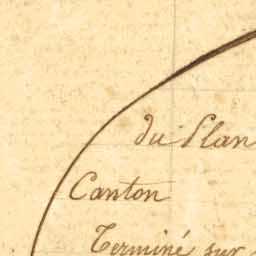 du Plan
Canton
Terminé sur